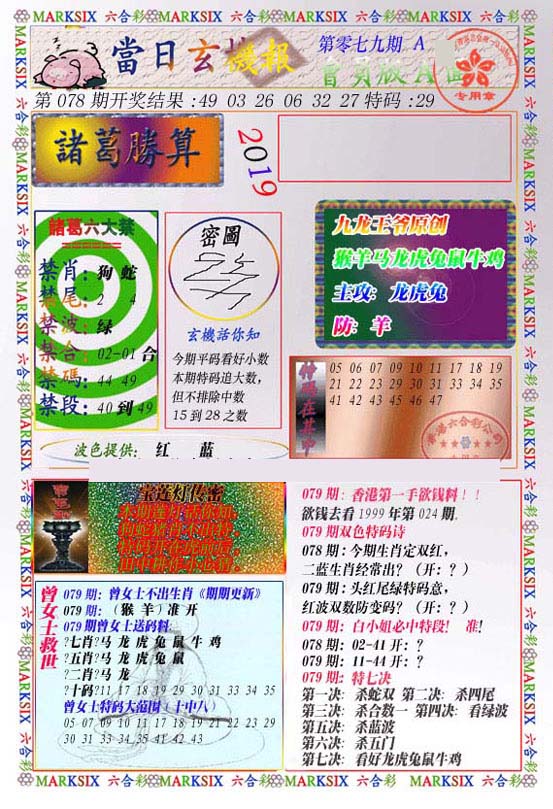 MARKSIX 六合彩 MARKSIX 六合彩 MARKSIX 六合彩 MARKSIX 六合彩 MARKSIX
當日玄機報
第零七九期 A
會員版A面
专用章
第 078 期开奖结果 :49 03 26 06 32 27 特码 :29
諸葛勝算
2019
諸葛六大禁
禁肖: 狗 蛇
禁尾: 2 4
禁波: 绿
禁合: 02-01 合
禁碼: 44 49
禁段: 40 到 49
密圖
玄機話你知
今期平码看好小数
本期特码追大数,
但不排除中数
15 到 28 之数
九龙王爷原创
猴羊马龙虎兔鼠牛鸡
主攻: 龙虎兔
防: 羊
特码在其中
05 06 07 08 09 10 11 17 18 19
21 22 23 29 30 31 33 34 35
41 42 43 45 46 47
波色提供: 红 蓝
宝莲灯传密
079 期: 曾女士不出生肖《期期更新》
079 期: (猴 羊) 准 开
079 期曾女士送码料:
?七肖?马 龙 虎 兔 鼠 牛 鸡
?五肖?马 龙 虎 兔 鼠
?二肖?马 龙
?十码?11 17 18 19 29 30 31 33 34 35
曾女士特码大范围 (十中八)
05 07 09 10 11 17 18 19 21 22 23 29
30 31 33 34 35 41 42 43
曾女士救世
079 期: 香港第一手欲钱料!!
欲钱去看 1999 年第 024 期.
079 期双色特码诗
078 期: 今期生肖定双红,
二蓝生肖经常出? (开: ?)
079 期: 头红尾绿特码意,
红波双数防变码? (开: ?)
079 期: 白小姐必中特段! 准!
078 期: 02-41 开: ?
079 期: 11-44 开: ?
079 期: 特七决
第一决: 杀蛇双 第二决: 杀四尾
第三决: 杀合数一 第四决: 看绿波
第五决: 杀蓝波
第六决: 杀五门
第七决: 看好龙虎兔鼠牛鸡
MARKSIX 六合彩 MARKSIX 六合彩 MARKSIX 六合彩 MARKSIX 六合彩 MARKSIX